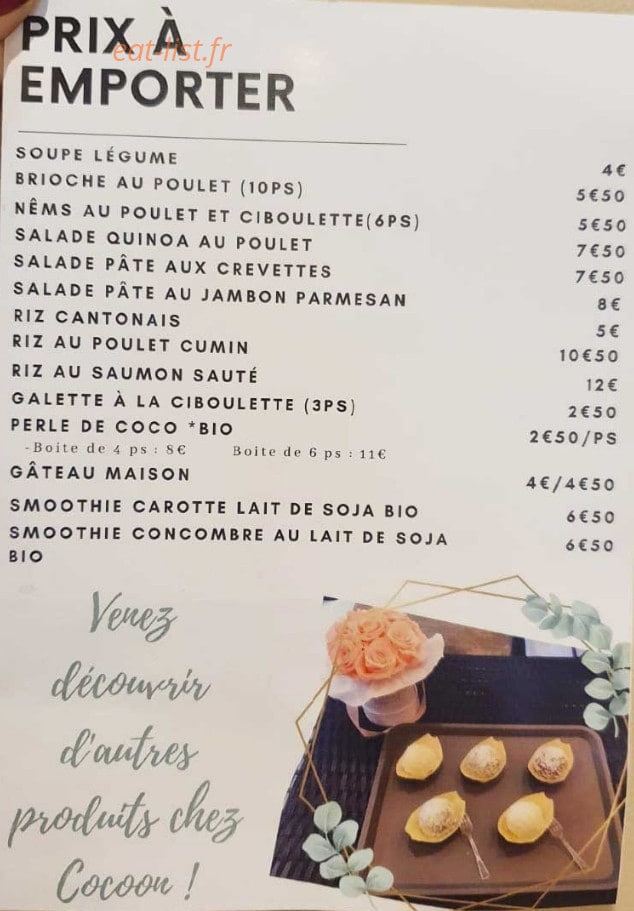 PRIX À
eat-list.fr
EMPORTER
SOUPE LÉGUME 4€
BRIOCHE AU POULET (10PS) 5€50
NÊMS AU POULET ET CIBOULETTE(6PS) 5€50
SALADE QUINOA AU POULET 7€50
SALADE PÂTE AUX CREVETTES 7€50
SALADE PÂTE AU JAMBON PARMESAN 8€
RIZ CANTONAIS 5€
RIZ AU POULET CUMIN 10€50
RIZ AU SAUMON SAUTÉ 12€
GALETTE À LA CIBOULETTE (3PS) 2€50
PERLE DE COCO *BIO 2€50/PS
-Boite de 4 ps : 8€ Boite de 6 ps : 11€
GÂTEAU MAISON 4€/4€50
SMOOTHIE CAROTTE LAIT DE SOJA BIO 6€50
SMOOTHIE CONCOMBRE AU LAIT DE SOJA 6€50
BIO
Venez
découvrir
d'autres
produits chez
Cocoon !